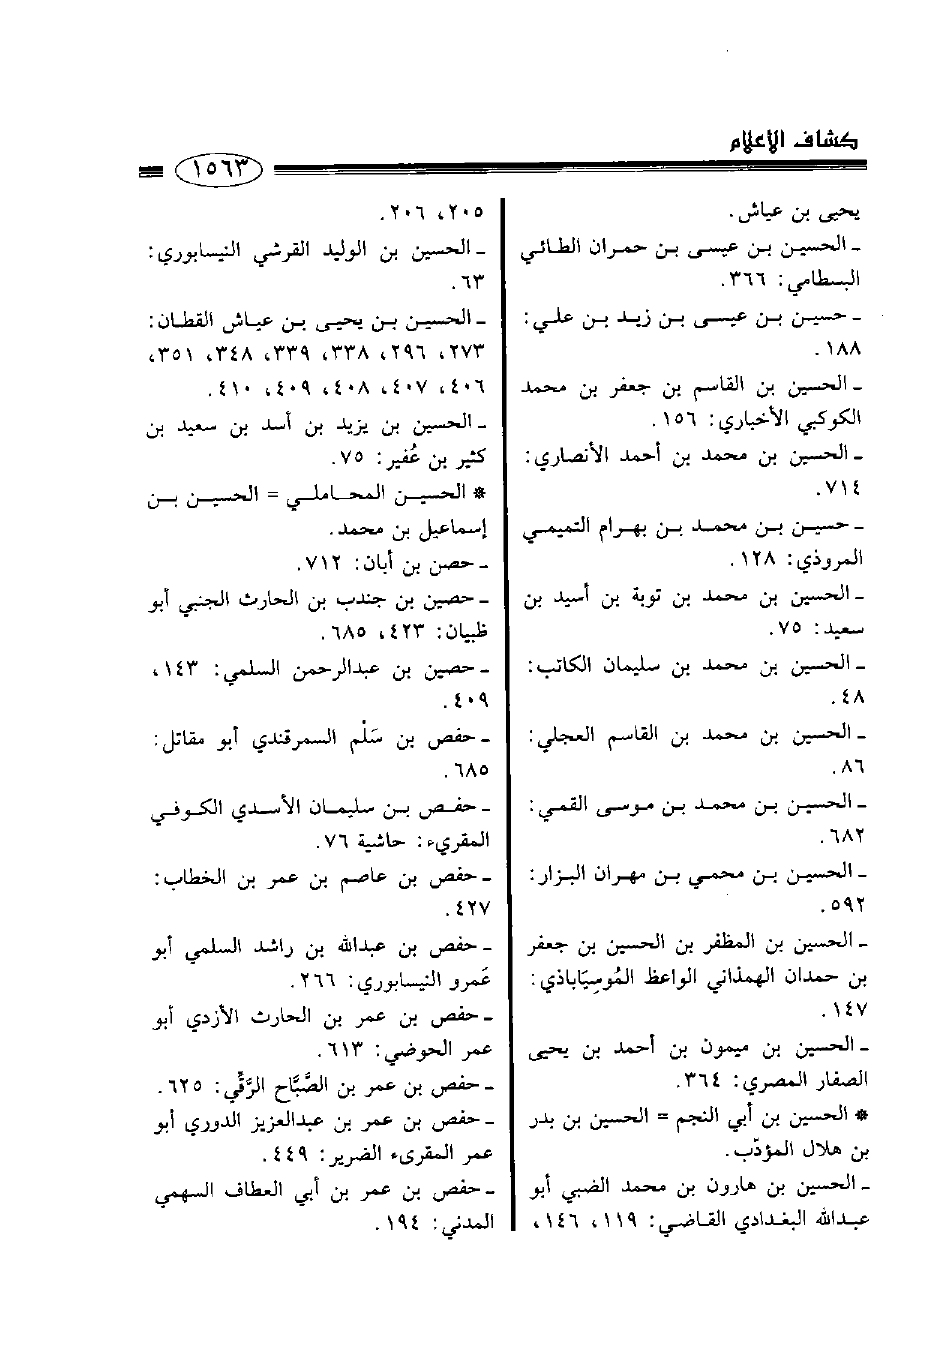 كشاف الأعلام
١٥٦٣
يحيى بن عياش.
ـ الحسين بن عيسى بن حمران الطائي
البسطامي: ٣٦٦.
ـ حسين بن عيسى بن زيد بن علي:
١٨٨.
ـ الحسين بن القاسم بن جعفر بن محمد
الكوكبي الأخباري: ١٥٦.
ـ الحسين بن محمد بن أحمد الأنصاري:
٧١٤.
ـ حسين بن محمد بن بهرام التميمي
المروذي: ١٢٨.
ـ الحسين بن محمد بن توبة بن أسيد بن
سعيد: ٧٥.
ـ الحسين بن محمد بن سليمان الكاتب:
٤٨.
ـ الحسين بن محمد بن القاسم العجلي:
٨٦.
ـ الحسين بن محمد بن موسى القمي:
٦٨٢.
ـ الحسين بن محمي بن مهران البزار:
٥٩٢.
ـ الحسين بن المظفر بن الحسين بن جعفر
بن حمدان الهمذاني الواعظ المُوسِيَاباذي:
١٤٧.
ـ الحسين بن ميمون بن أحمد بن يحيى
الصفار المصري: ٣٦٤.
* الحسين بن أبي النجم = الحسين بن بدر
بن هلال المؤدّب.
ـ الحسين بن هارون بن محمد الضبي أبو
عبدالله البغدادي القاضي: ١١٩، ١٤٦،
٢٠٥، ٢٠٦.
ـ الحسين بن الوليد القرشي النيسابوري:
٦٣.
ـ الحسين بن يحيى بن عياش القطان:
٢٧٣، ٢٩٦، ٣٣٨، ٣٣٩، ٣٤٨، ٣٥١،
٤٠٦، ٤٠٧، ٤٠٨، ٤٠٩، ٤١٠.
ـ الحسين بن يزيد بن أسد بن سعيد بن
كثير بن عُفير: ٧٥.
* الحسين المحاملي = الحسين بن
إسماعيل بن محمد.
ـ حصن بن أبان: ٧١٢.
ـ حصين بن جندب بن الحارث الجنبي أبو
ظبيان: ٤٢٣، ٦٨٥.
ـ حصين بن عبدالرحمن السلمي: ١٤٣،
٤٠٩.
ـ حفص بن سَلْم السمرقندي أبو مقاتل:
٦٨٥.
ـ حفص بن سليمان الأسدي الكوفي
المقريء: حاشية ٧٦.
ـ حفص بن عاصم بن عمر بن الخطاب:
٤٢٧.
ـ حفص بن عبدالله بن راشد السلمي أبو
عَمرو النيسابوري: ٢٦٦.
ـ حفص بن عمر بن الحارث الأزدي أبو
عمر الحوضي: ٦١٣.
ـ حفص بن عمر بن الصَّبَّاح الرَّقِّي: ٦٢٥.
ـ حفص بن عمر بن عبدالعزيز الدوري أبو
عمر المقرىء الضرير: ٤٤٩.
ـ حفص بن عمر بن أبي العطاف السهمي
المدني: ١٩٤.